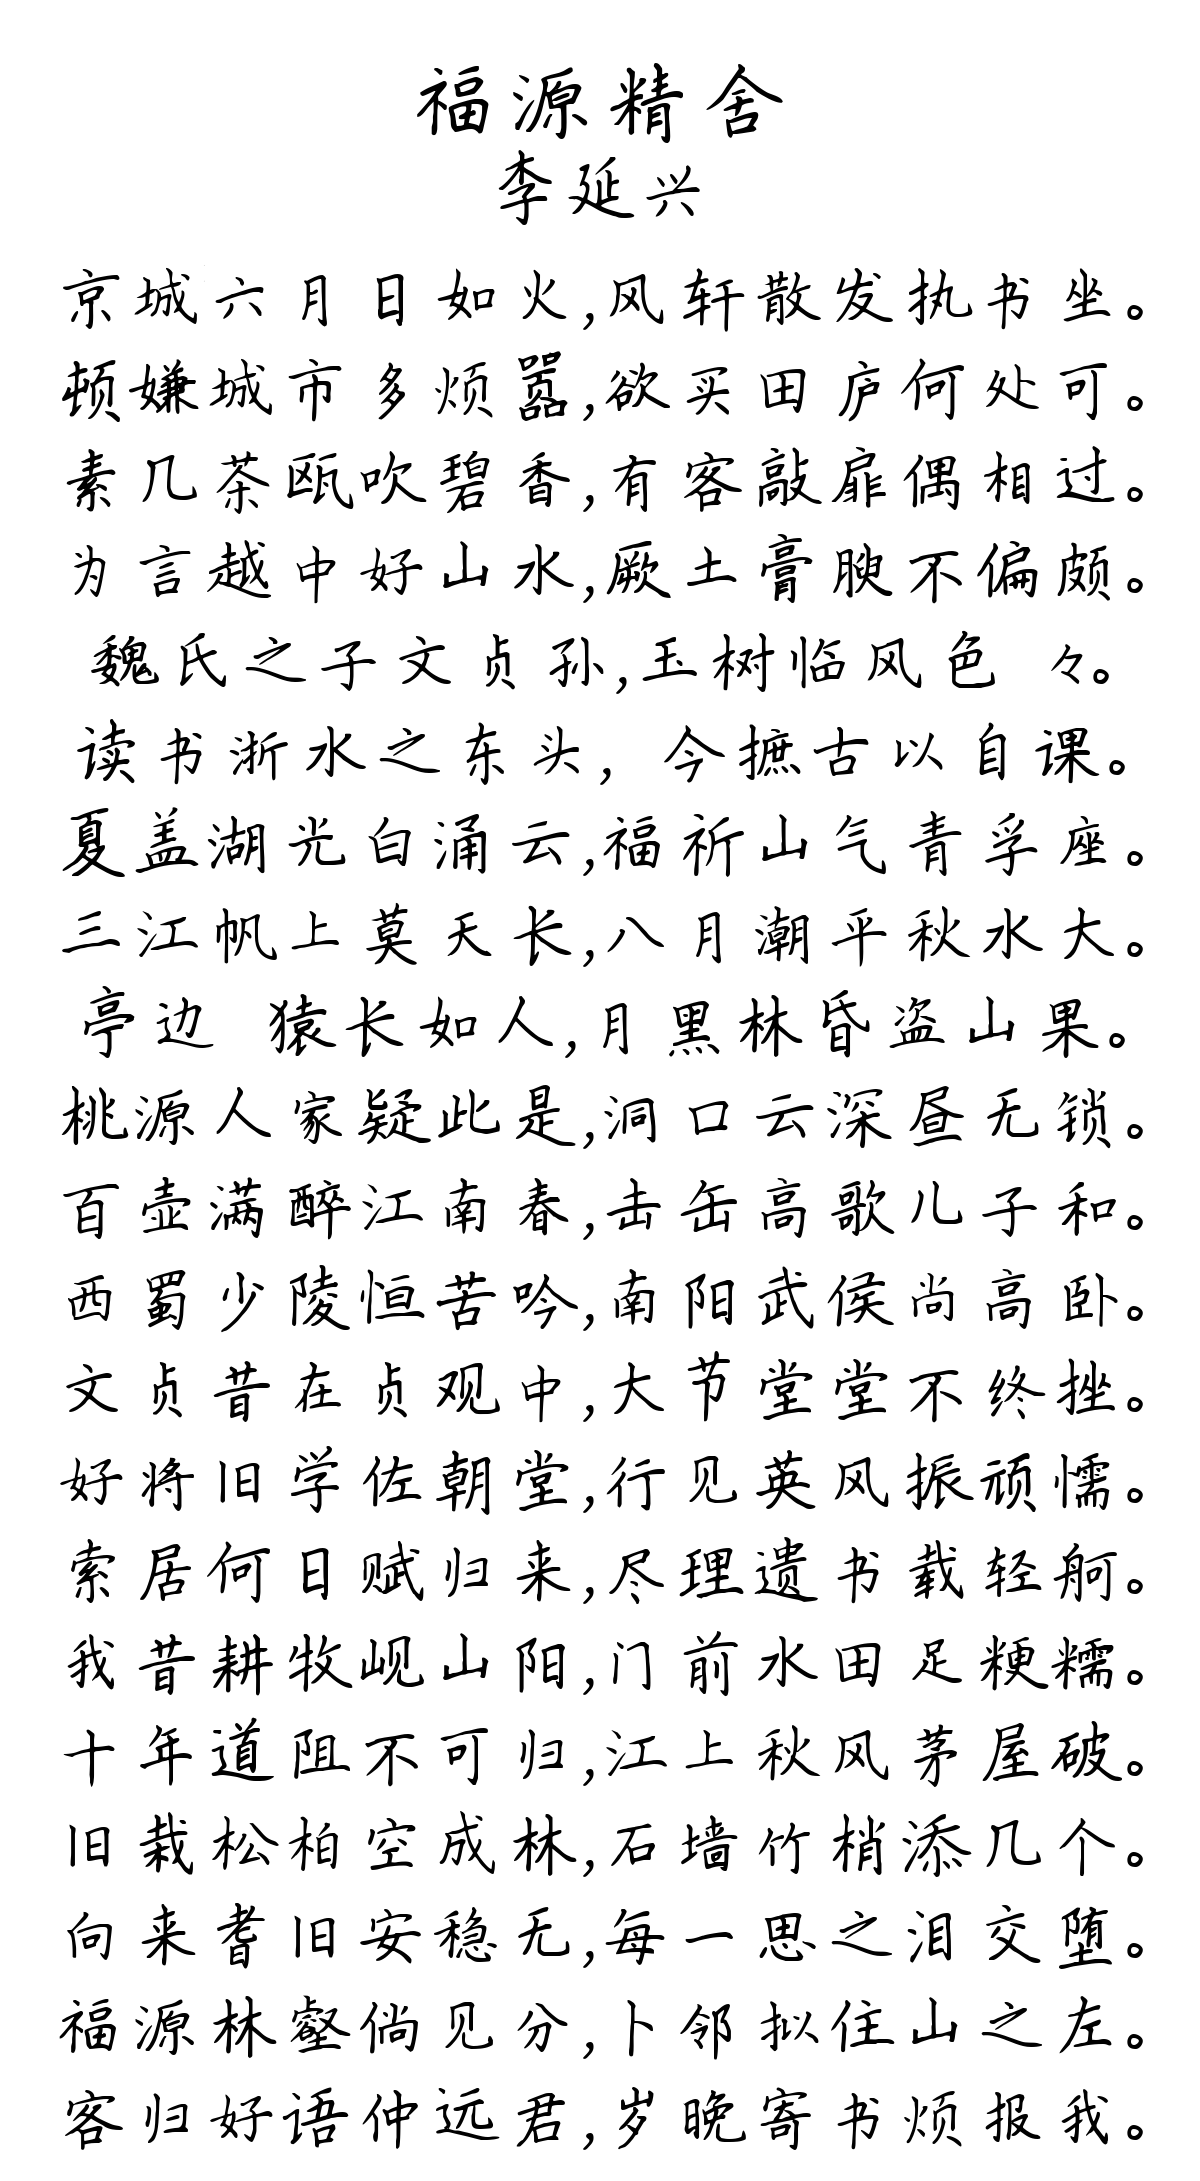 福源精舍
李延兴
京城六月日如火,风轩散发执书坐。
顿嫌城市多烦嚣,欲买田庐何处可。
素几茶瓯吹碧香,有客敲扉偶相过。
为言越中好山水,厥土膏腴不偏颇。
魏氏之子文贞孙,玉树临风色 々。
读书浙水之东头, 今摭古以自课。
夏盖湖光白涌云,福祈山气青孚座。
三江帆上莫天长,八月潮平秋水大。
亭边 猿长如人,月黑林昏盗山果。
桃源人家疑此是,洞口云深昼无锁。
百壶满醉江南春,击缶高歌儿子和。
西蜀少陵恒苦吟,南阳武侯尚高卧。
文贞昔在贞观中,大节堂堂不终挫。
好将旧学佐朝堂,行见英风振顽懦。
索居何日赋归来,尽理遗书载轻舸。
我昔耕牧岘山阳,门前水田足粳糯。
十年道阻不可归,江上秋风茅屋破。
旧栽松柏空成林,石墙竹梢添几个。
向来耆旧安稳无,每一思之泪交堕。
福源林壑倘见分,卜邻拟住山之左。
客归好语仲远君,岁晚寄书烦报我。